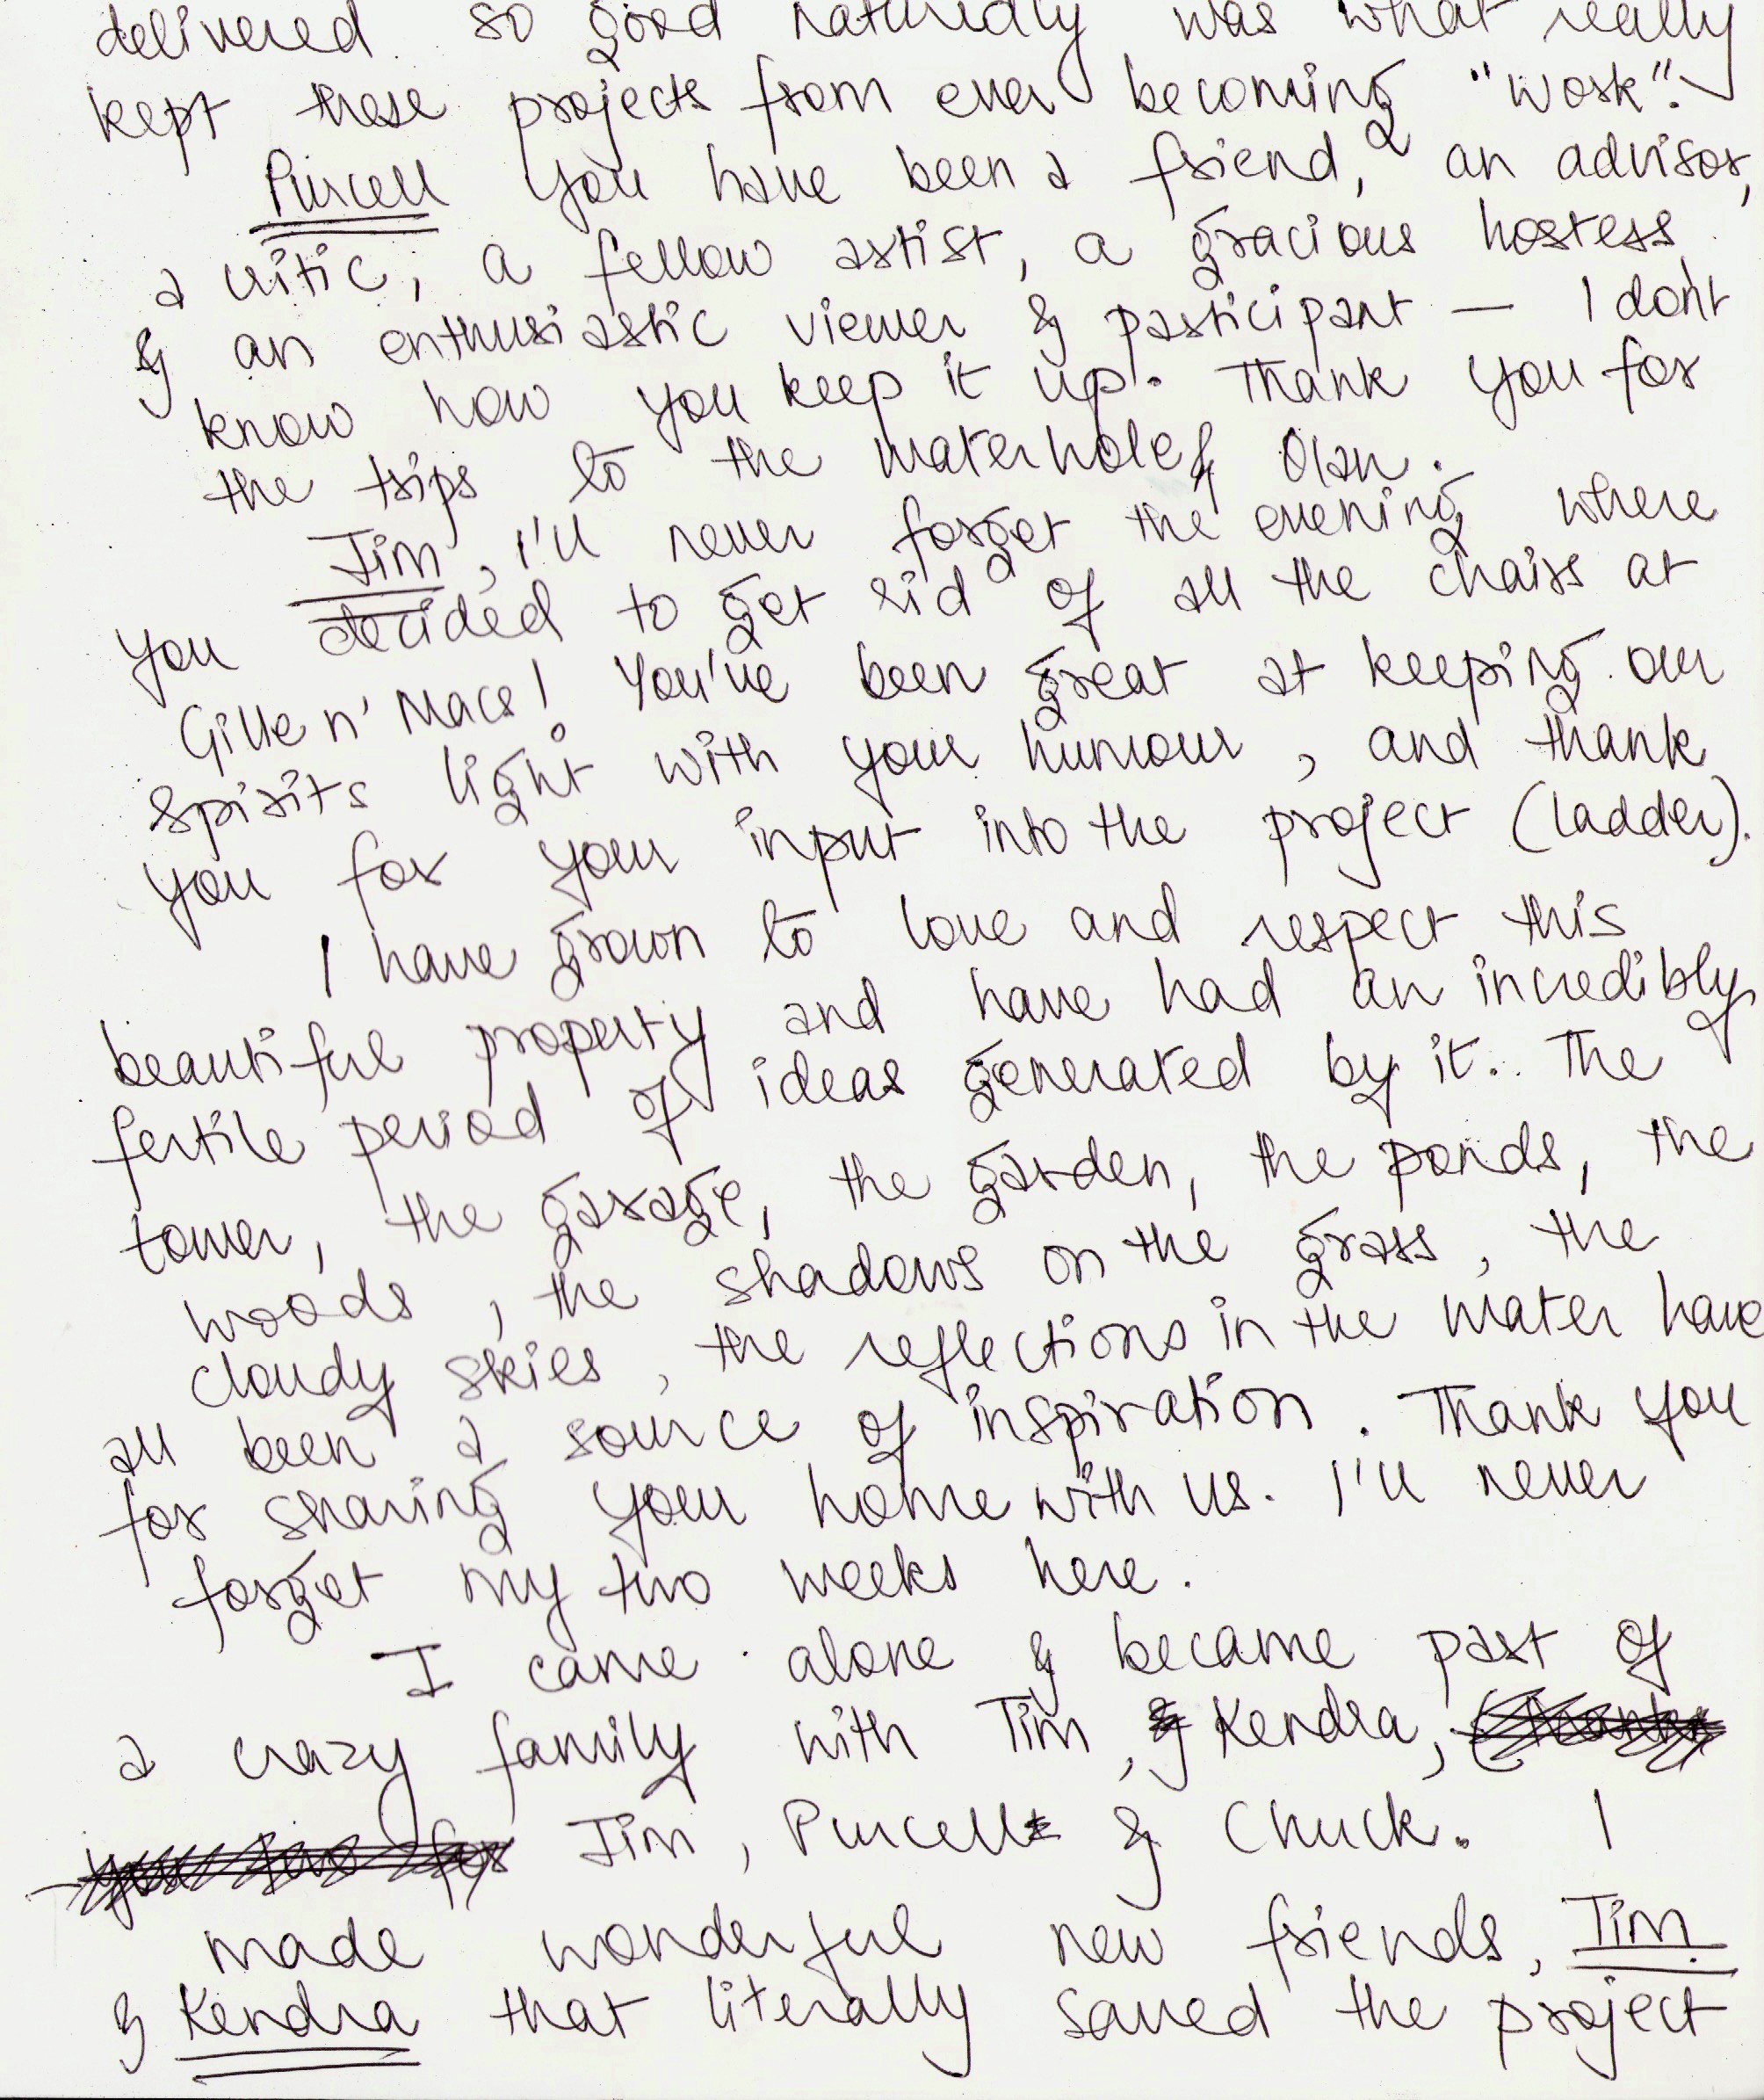 delivered so good naturedly was what really
kept these projects from ever becoming "work".
Purcell you have been a friend, an advisor,
a critic, a fellow artist, a gracious hostess,
& an enthusiastic viewer & participant — I don't
know how you keep it up. Thank you for
the trips to the waterhole & Olan.
Jim, I'll never forget the evening where
you decided to get rid of all the chairs at
Gille n' Macs! You've been great at keeping our
spirits light with your humour, and thank
you for your input into the project (ladder).
I have grown to love and respect this
beautiful property and have had an incredibly
fertile period of ideas generated by it. The
tower, the garage, the garden, the ponds, the
woods, the shadows on the grass, the
cloudy skies, the reflections in the water have
all been a source of inspiration. Thank you
for sharing your home with us. I'll never
forget my two weeks here.
I came alone & became part of
a crazy family with Tim, & Kendra,
Jim, Purcell & Chuck. I
made wonderful new friends, Tim
& Kendra that literally saved the project